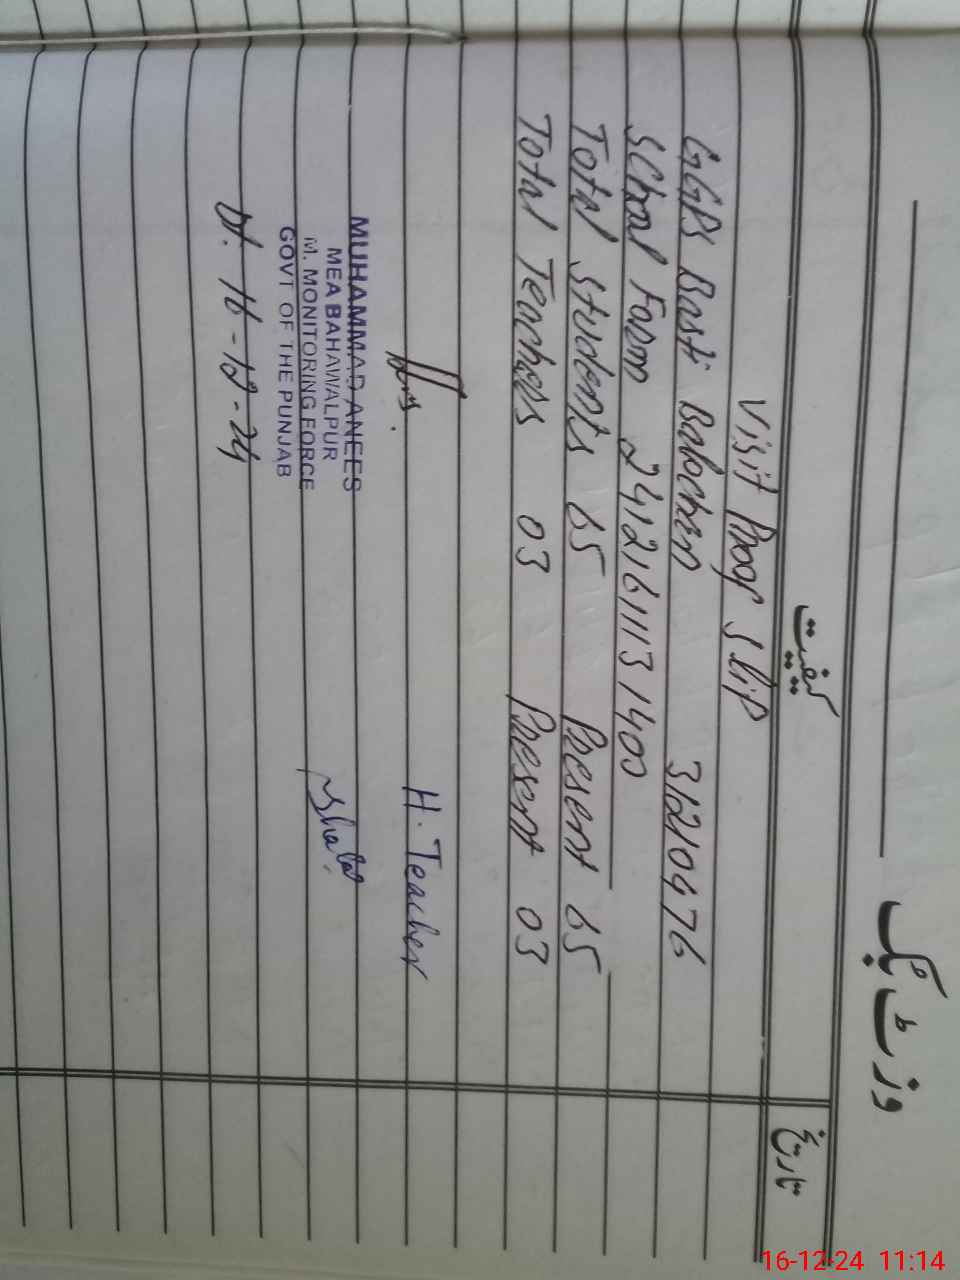 وزٹ بک
کیفیت
تاریخ
Visit Proof Slip
GGPS Basti Balochan 31210476
School Form 241216111131400
Total Students 65 Present 65
Total Teachers 03 Present 03
H. Teacher
MUHAMMAD ANEES
MEA BAHAWALPUR
M. MONITORING FORCE
GOVT OF THE PUNJAB
Dt. 16-12-24
16-12-24 11:14